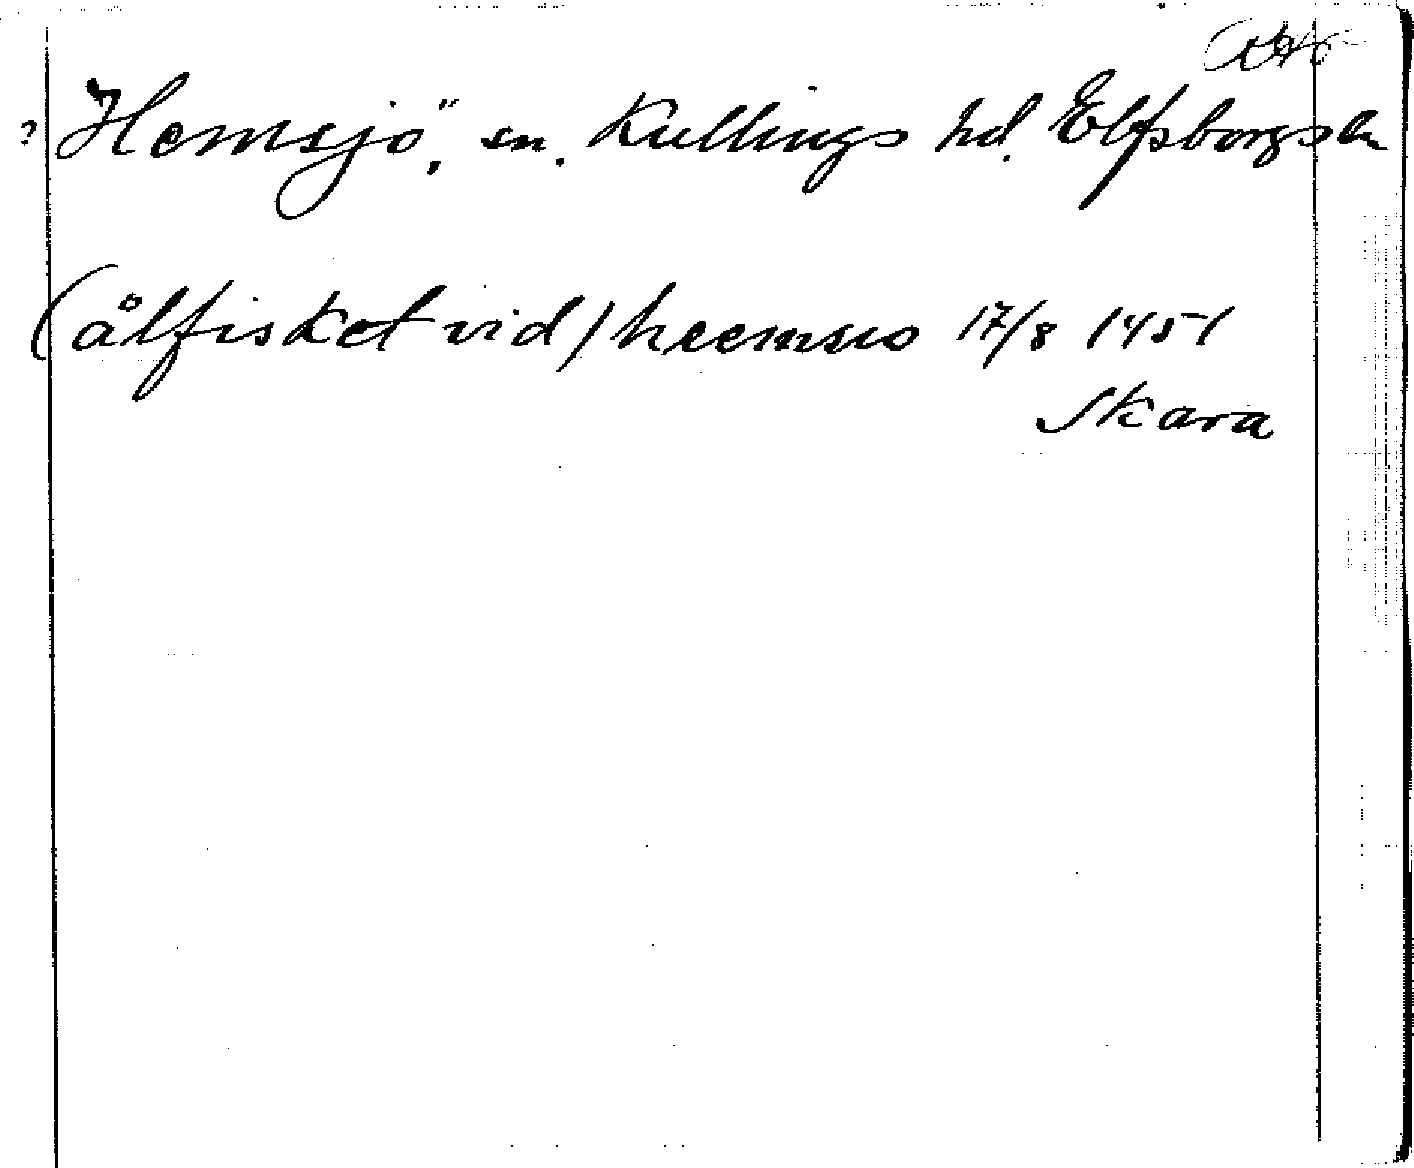 ? Hemsjö, sn. Kullings hd. Elfsborgs ln
(ålfisket vid) heemsio 17/8 1451
Skara